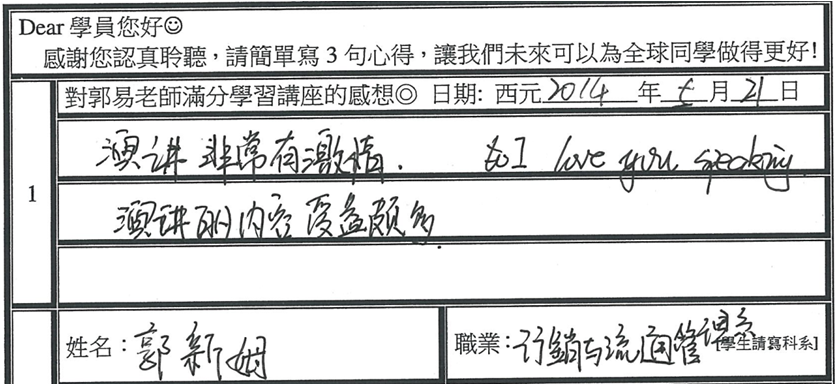 Dear 學員您好☺
感謝您認真聆聽，請簡單寫 3 句心得，讓我們未來可以為全球同學做得更好!
1 對郭易老師滿分學習講座的感想◎ 日期: 西元 2014 年 5 月 21 日
演讲 非常有激情. I love you speaking
演讲的内容受益颇多.
姓名：郭新 職業：行銷与流通管理系 [學生請寫科系]